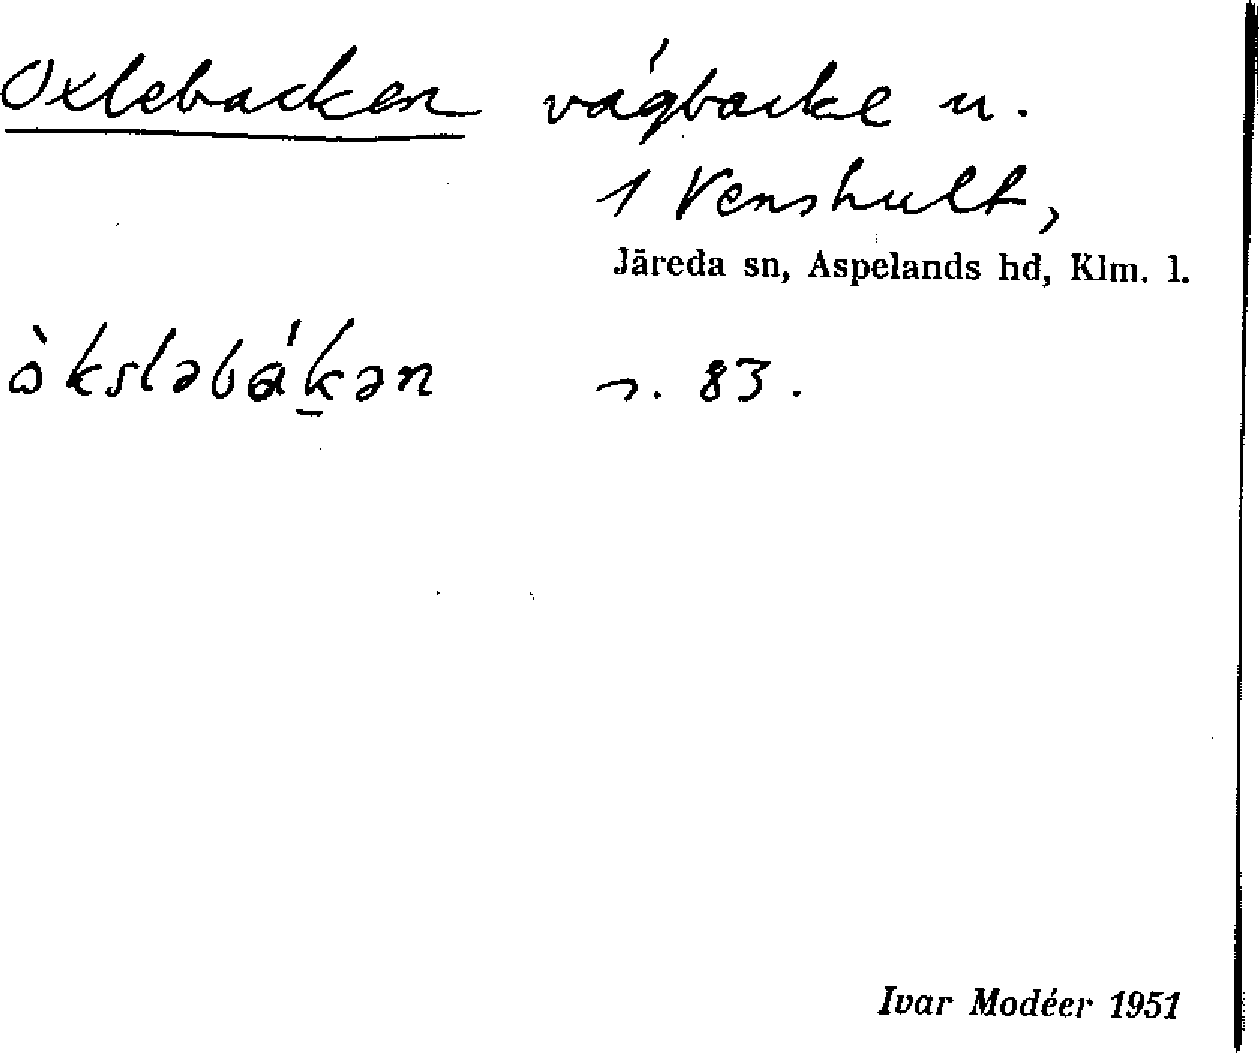 Oxlebacken vägbacke u.
1 Venshult,
Järeda sn, Aspelands hd, Klm. l.
òksləbákən s. 83.
Ivar Modéer 1951